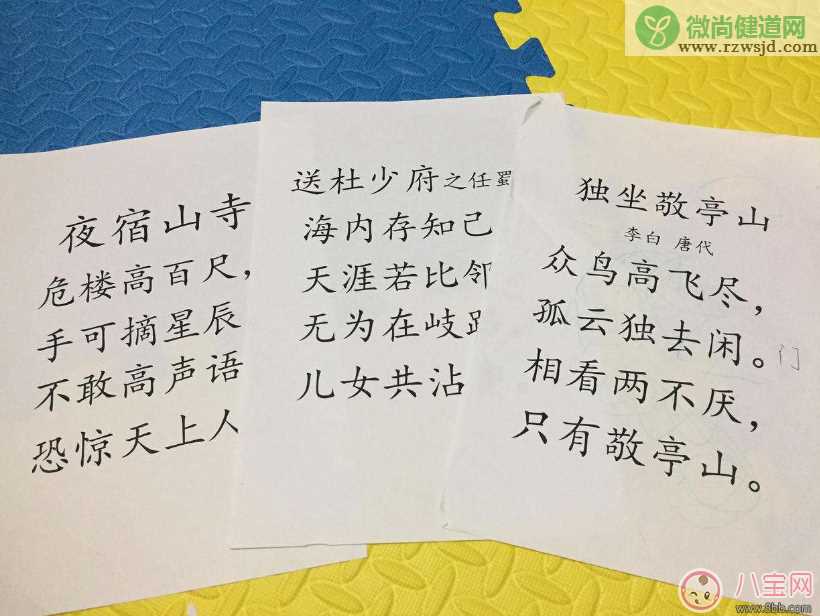 微尚健道网
www.rzwsjd.com
夜宿山寺
危楼高百尺，
手可摘星辰
不敢高声语
恐惊天上人
送杜少府之任蜀
海内存知己
天涯若比邻
无为在岐路
儿女共沾
独坐敬亭山
李白 唐代
众鸟高飞尽，
孤云独去闲。门
相看两不厌，
只有敬亭山。
八宝网
www.8bb.com